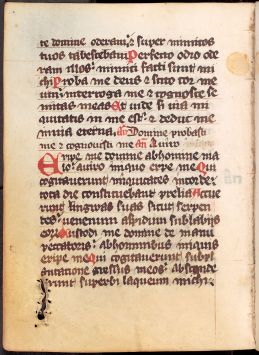 te domine oderam: et super inimicos
tuos tabescebam Perfecto odio ode
ram illos: inimici facti sunt mi
chi Proba me deus et scito cor me
um: interroga me et cognosce se
mitas meas Et vide si via ini
quitatis in me est: et deduc me
in via eterna. Domine probasti
me et cognovisti me A viro
Eripe me domine ab homine ma
lo: a viro iniquo eripe me Qui
cogitaverunt iniquitates in corde:
tota die constituebant prelia Acue
runt linguas suas sicut serpen
tes: venenum aspidum sub labiis
eorum Custodi me domine de manu
peccatoris: ab hominibus iniquis
eripe me Qui cogitaverunt subpl
antare gressus meos: absconde
runt superbi laqueum michi